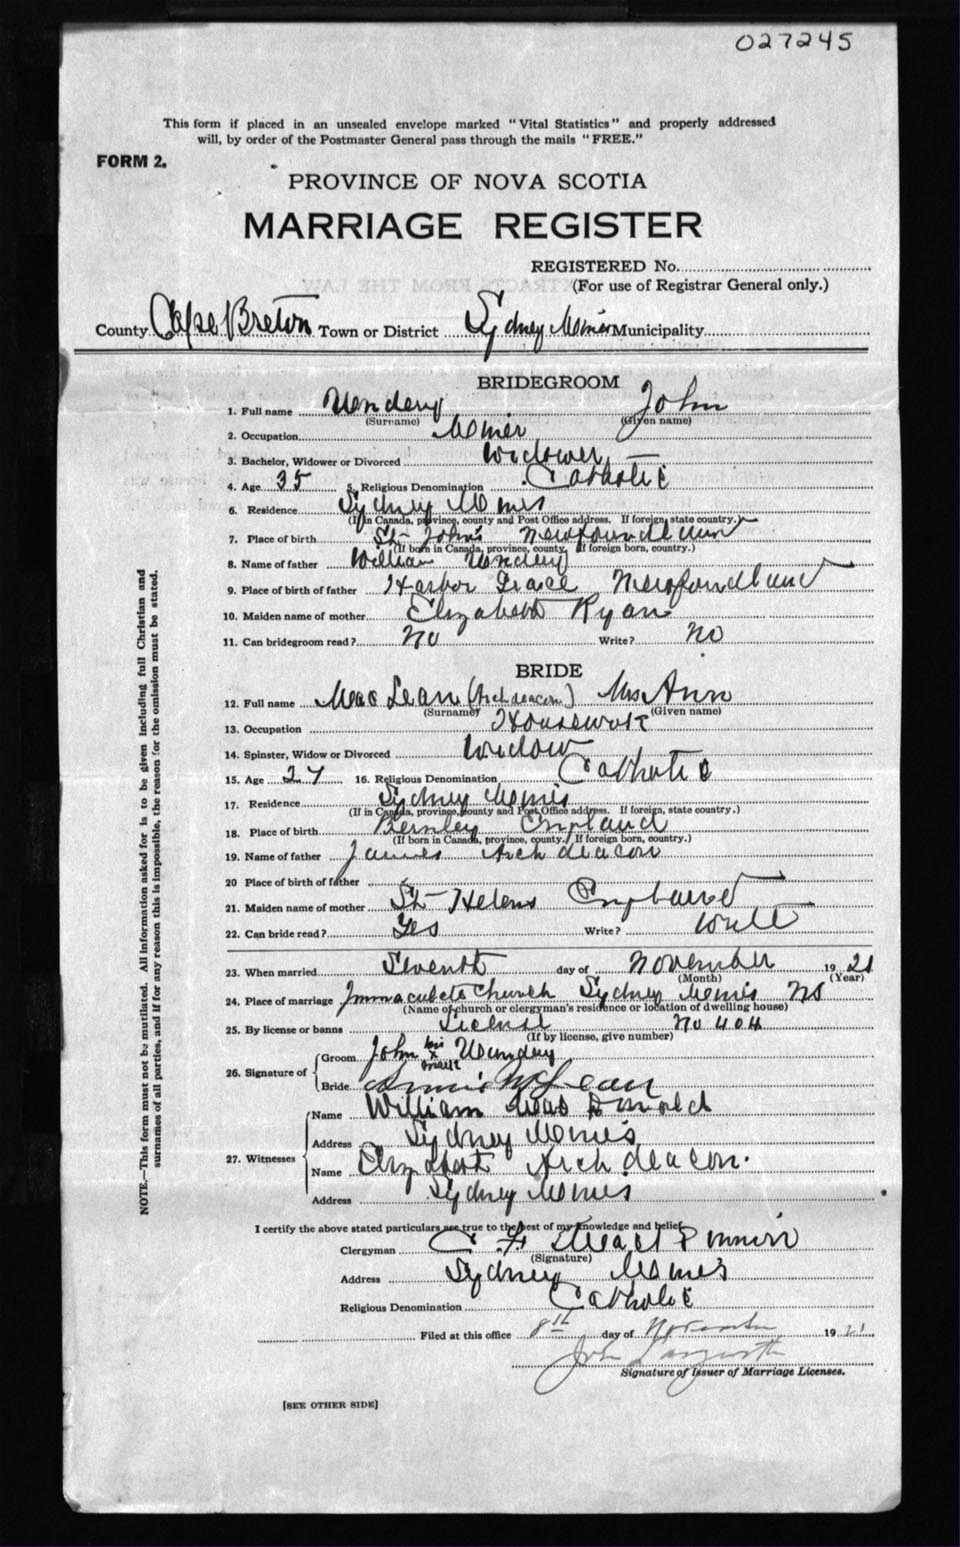 027245
This form if placed in an unsealed envelope marked "Vital Statistics" and properly addressed
will, by order of the Postmaster General pass through the mails "FREE."
FORM 2.
PROVINCE OF NOVA SCOTIA
MARRIAGE REGISTER
REGISTERED No.
(For use of Registrar General only.)
County Cape Breton Town or District Sydney Mines Municipality
BRIDEGROOM
1. Full name John
(Surname) (Given name)
2. Occupation Miner
3. Bachelor, Widower or Divorced Widower
4. Age 35 5. Religious Denomination Catholic
6. Residence Sydney Mines
(If in Canada, province, county and Post Office address. If foreign, state country.)
7. Place of birth St John's Newfoundland
(If born in Canada, province, county. If foreign born, country.)
8. Name of father William
9. Place of birth of father Harbor Grace Newfoundland
10. Maiden name of mother Elizabeth Ryan
11. Can bridegroom read? No Write? No
BRIDE
12. Full name Mac Lean (Archdeacon) Mrs Ann
(Surname) (Given name)
13. Occupation Housework
14. Spinster, Widow or Divorced Widow
15. Age 27 16. Religious Denomination Catholic
17. Residence Sydney Mines
(If in Canada, province, county and Post Office address. If foreign, state country.)
18. Place of birth England
(If born in Canada, province, county. If foreign born, country.)
19. Name of father James Archdeacon
20 Place of birth of father
21. Maiden name of mother St Helens England
22. Can bride read? Yes Write?
23. When married Seventh day of November 1921
(Month) (Year)
24. Place of marriage Immaculate Church Sydney Mines NS
(Name of church or clergyman's residence or location of dwelling house)
25. By license or banns License No 404
(If by license, give number)
26. Signature of
Groom John his x mark
Bride Annie McLean
27. Witnesses
Name William Mac Donald
Address Sydney Mines
Name Elizabeth Archdeacon.
Address Sydney Mines
I certify the above stated particulars are true to the best of my knowledge and belief.
Clergyman C. F.
(Signature)
Address Sydney Mines
Religious Denomination Catholic
Filed at this office 8th day of November 1921
John
Signature of Issuer of Marriage Licenses.
[SEE OTHER SIDE]
NOTE.—This form must not be mutilated. All information asked for is to be given including full Christian and
surnames of all parties, and if for any reason this is impossible, the reason for the omission must be stated.